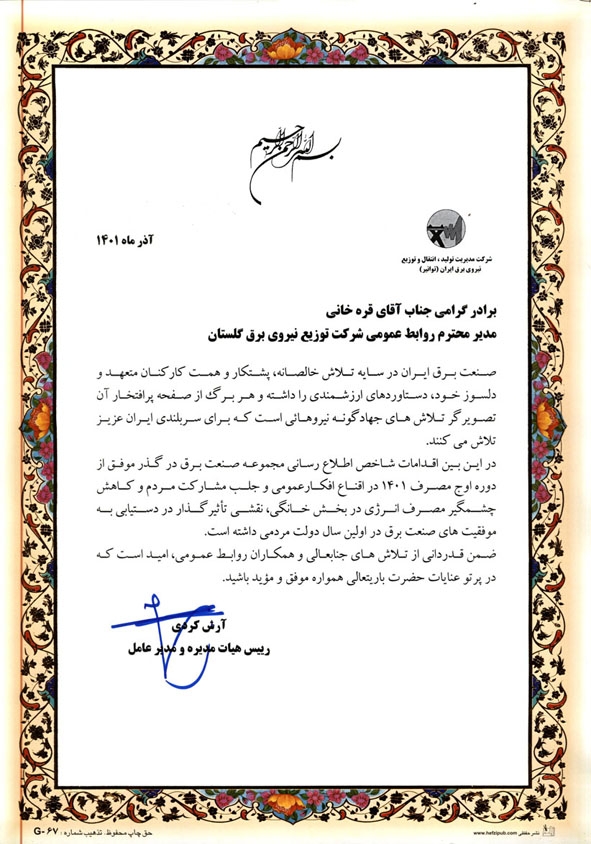 بسم الله الرحمن الرحیم
آذر ماه ۱۴۰۱
شرکت مدیریت تولید ، انتقال و توزیع
نیروی برق ایران (توانیر)
برادر گرامی جناب آقای قره خانی
مدیر محترم روابط عمومی شرکت توزیع نیروی برق گلستان
صنعت برق ایران در سایه تلاش خالصانه، پشتکار و همت کارکنان متعهد و
دلسوز خود، دستاوردهای ارزشمندی را داشته و هر برگ از صفحه پرافتخار آن
تصویرگر تلاش های جهادگونه نیروهائی است که برای سربلندی ایران عزیز
تلاش می کنند.
در این بین اقدامات شاخص اطلاع رسانی مجموعه صنعت برق در گذر موفق از
دوره اوج مصرف ۱۴۰۱ در اقناع افکارعمومی و جلب مشارکت مردم و کاهش
چشمگیر مصرف انرژی در بخش خانگی، نقشی تأثیرگذار در دستیابی به
موفقیت های صنعت برق در اولین سال دولت مردمی داشته است.
ضمن قدردانی از تلاش های جنابعالی و همکاران روابط عمومی، امید است که
در پرتو عنایات حضرت باریتعالی همواره موفق و مؤید باشید.
آرش کردی
رییس هیات مدیره و مدیر عامل
حق چاپ محفوظ. تذهیب شماره : G-۶۷
نشر حفظی www.hafzipub.com